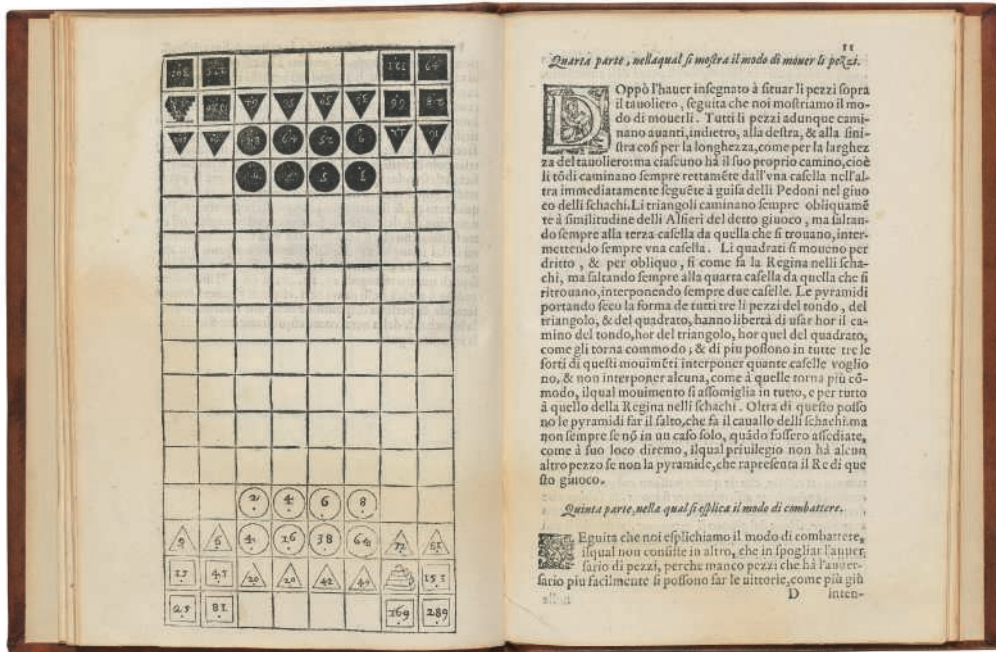 2 4 6 8
9 6 4 16 64 72
25 20 20 42 153
25 81 169 289
11
Quarta parte, nellaqual si mostra il modo di mouer li pezzi.
DOppò l'hauer insegnato à situar li pezzi sopra
il tauoliero, seguita che noi mostriamo il mo-
do di mouerli. Tutti li pezzi adunque cami-
nano auanti, indietro, alla destra, & alla sini-
stra cosi per la longhezza, come per la larghez
za del tauoliero: ma ciascuno hà il suo proprio camino, cioè
li tõdi caminano sempre rettamẽte dall'vna casella nell'al-
tra immediatamente seguẽte à guisa delli Pedoni nel giuo
co delli schachi. Li triangoli caminano sempre obliquamẽ
te à similitudine delli Alfieri del detto giuoco, ma saltan-
do sempre alla terza casella da quella che si trouano, inter-
mettendo sempre vna casella. Li quadrati si moueno per
dritto, & per obliquo, si come fa la Regina nelli scha-
chi, ma saltando sempre alla quarta casella da quella che si
ritrouano, interponendo sempre due caselle. Le pyramidi
portando seco la forma de tutti tre li pezzi del tondo, del
triangolo, & del quadrato, hanno libertà di usar hor il ca-
mino del tondo, hor del triangolo, hor quel del quadrato,
come gli torna commodo; & di piu possono in tutte tre le
sorti di questi mouimẽti interponer quante caselle voglio
no, & non interponer alcuna, come à quelle torna più cõ-
modo, ilqual mouimento si assomiglia in tutto, e per tutto
à quello della Regina nelli schachi. Oltra di questo posso
no le pyramidi far il salto, che fà il cauallo delli schachi: ma
non sempre se nõ in un caso solo, quãdo fossero assediate,
come à suo loco diremo, ilqual priuilegio non hà alcun
altro pezzo se non la pyramide, che rapresenta il Re di que
sto giuoco.
Quinta parte, nella qual si esplica il modo di combattere.
SEguita che noi esplichiamo il modo di combattere,
ilqual non consiste in altro, che in spogliar l'auuer
sario di pezzi, perche manco pezzi che hà l'auuer-
sario piu facilmente si possono far le uittorie, come più giù
D inten-